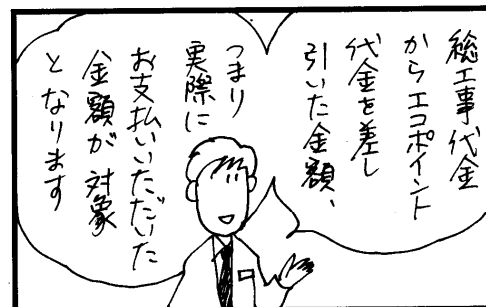 総工事代金
からエコポイント
代金を差し
引いた金額、
つまり
実際に
お支払いいただいた
金額が対象
となります